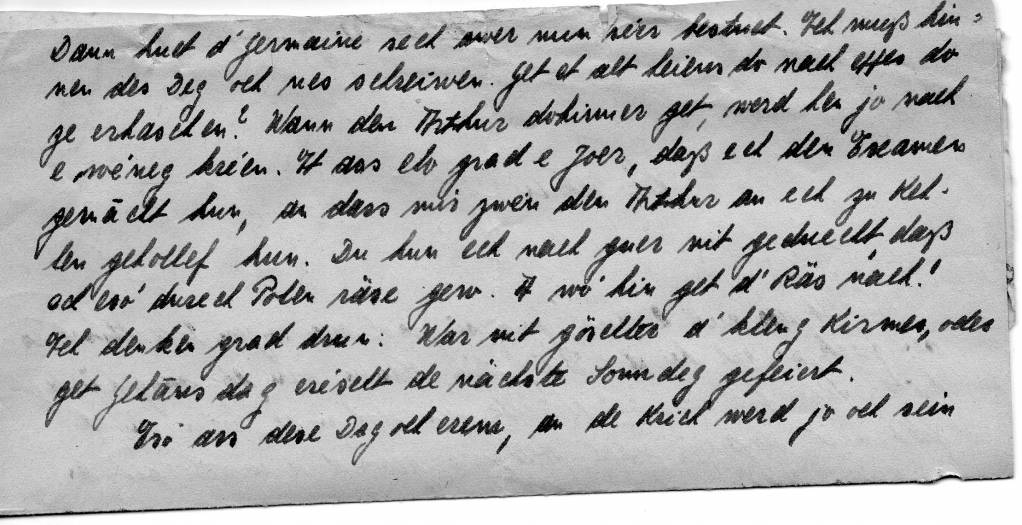 Dann huet d' Germaine sech awer nun sēer bestuet. Ech muß hin-
nen des Deg och nes schreiwen. Get et alt heiens do nach effes do
ze erhaschen? Wann den Arthur dohinner get, werd hen jo nach
e wéneg kréien. Et ass elo grad e Joer, daß ech den Examen
gemācht hun, an dass mir zwēn den Arthur an ech zu Keh-
len gehollef hun. Du hun ech nach guer nit geduecht daß
ech esó durech Polen räse gew. A wó hin get d' Räs nach!
Ech denken grad drun: War nit göschter d' kleng Kirmes, oder
get Gehānsdag eréischt de nächste Sonndeg gefeiert.
Esó ass dese Dag och erem, an de Krich werd jo och sein